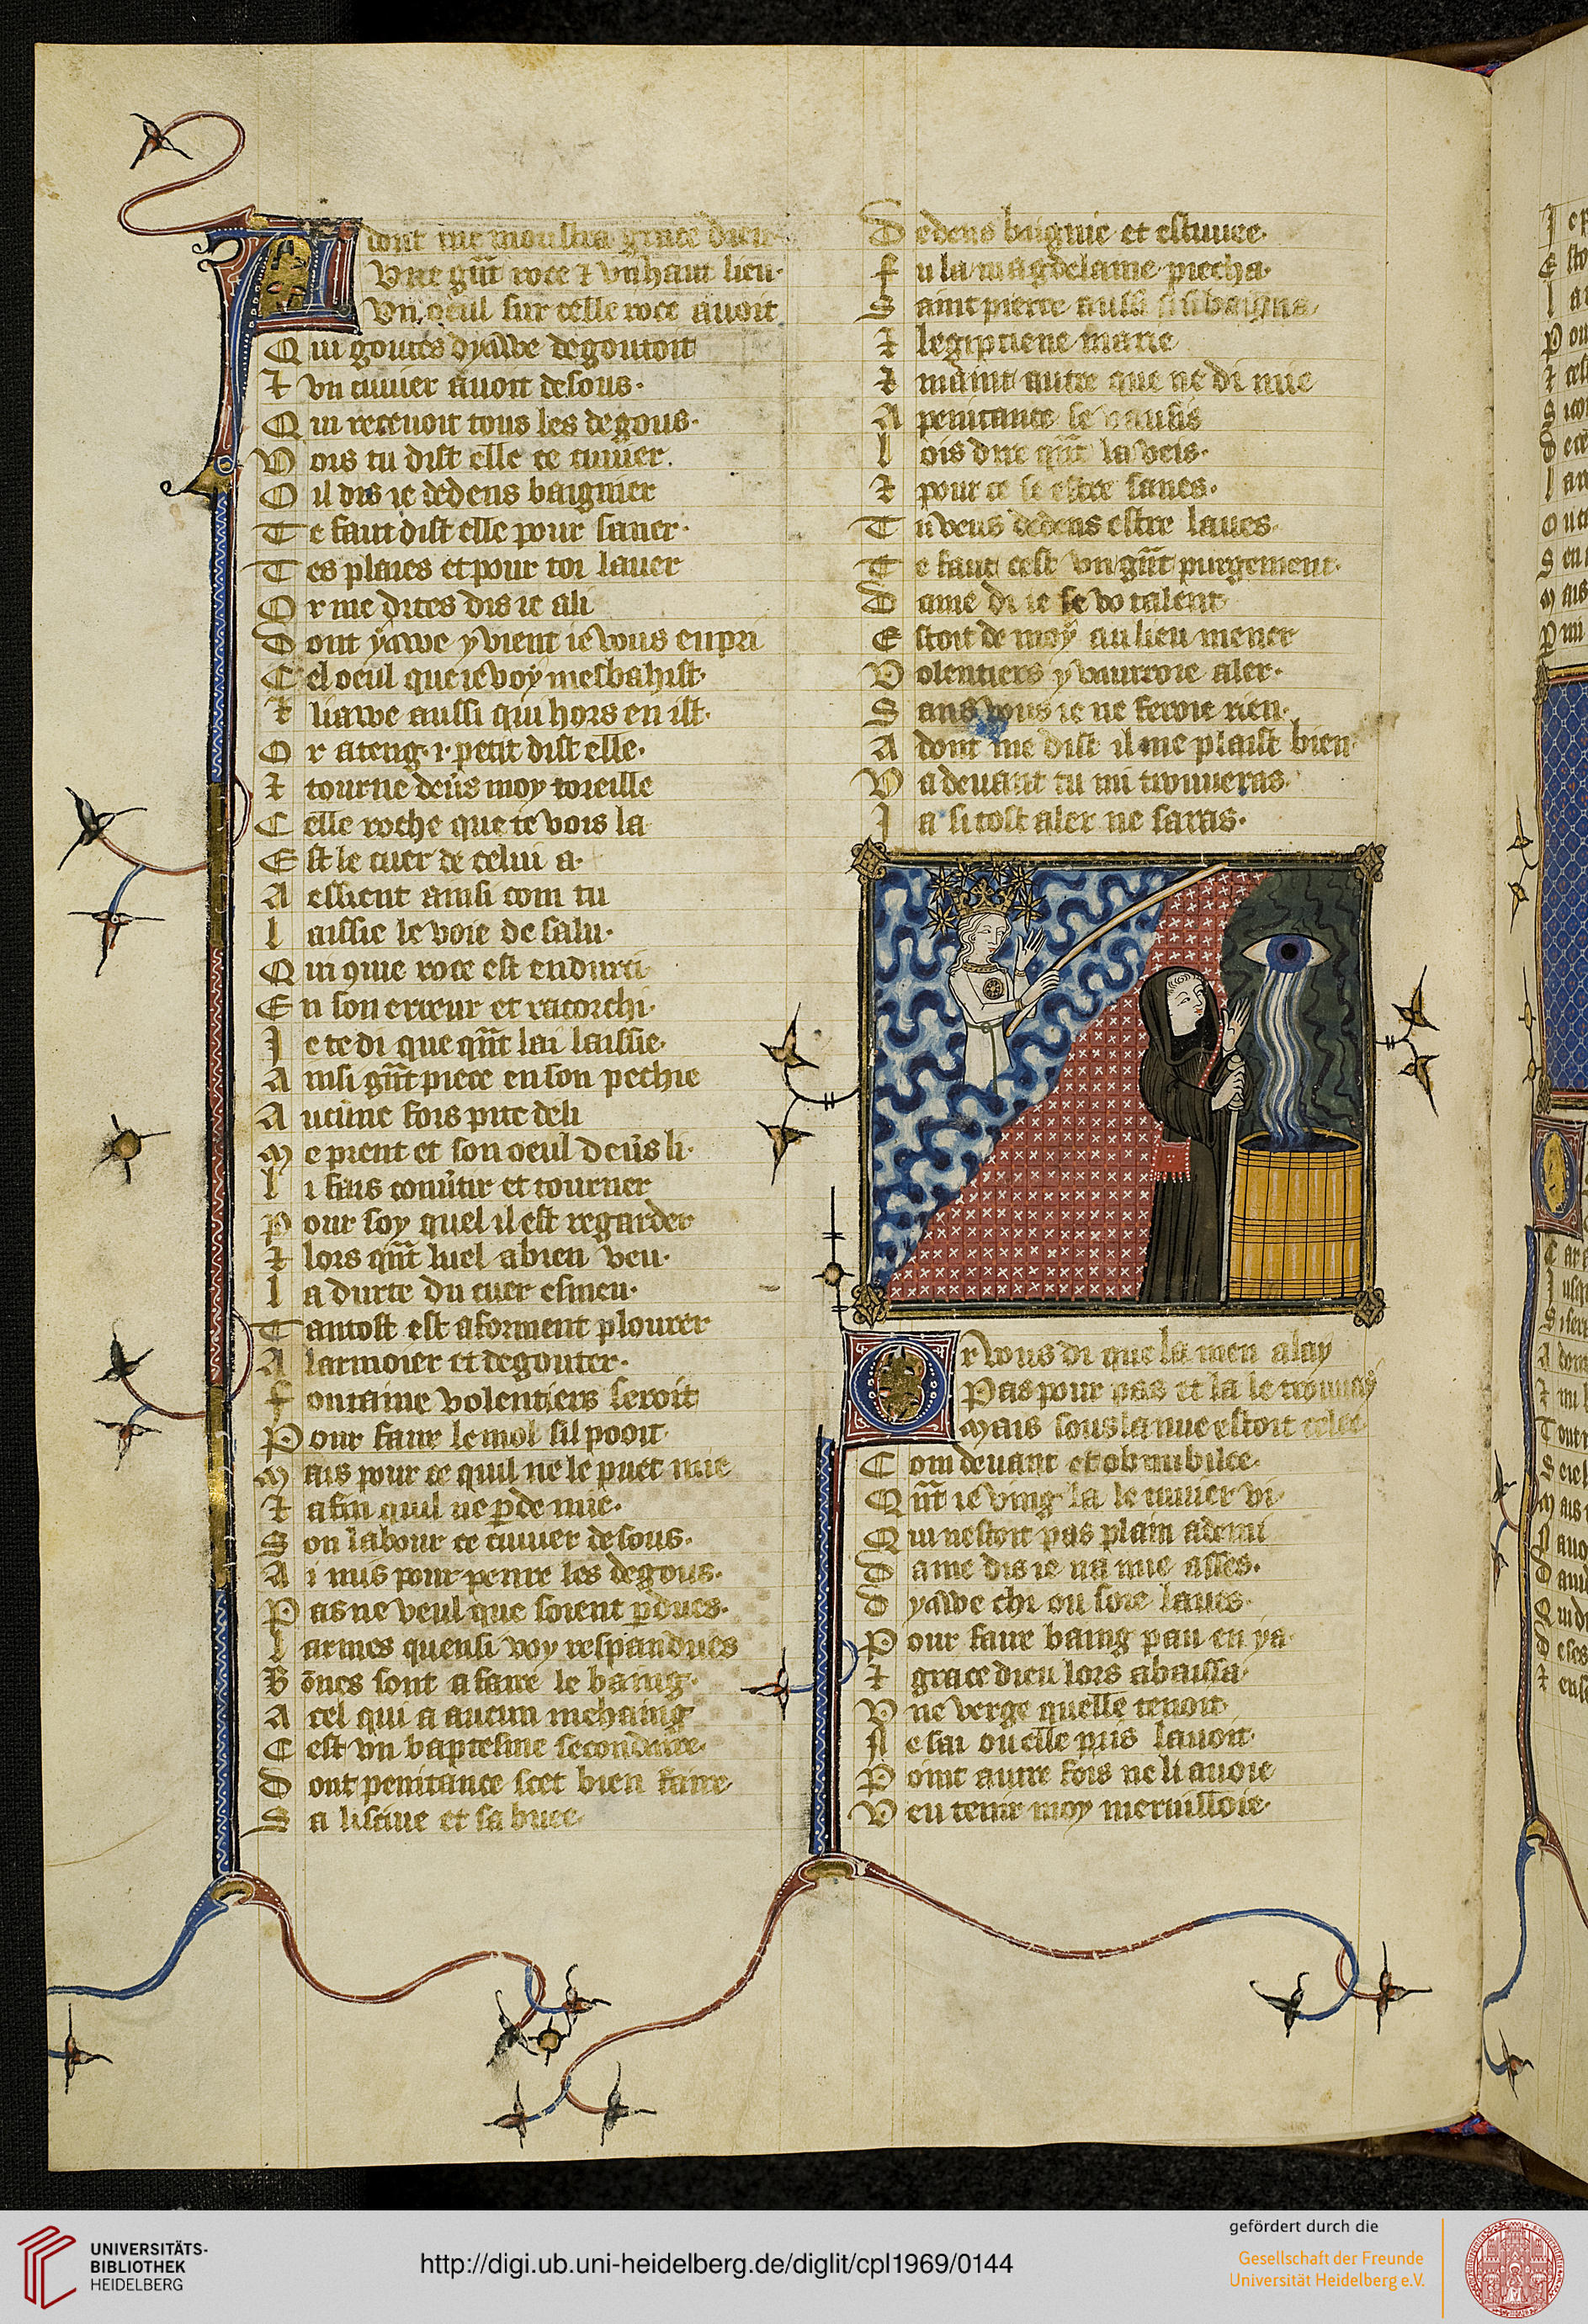 Adont me moustra grace dieu
Vne gñt roce ⁊ vn haut lieu·
Vn oeul sur celle roce auoit
Qui goutes dyawe degoutoit
⁊ vn cuuier auoit desous·
Qui receuoit tous les degous·
Vois tu dist elle ce cuuier.
Oil dis ie dedens baignier
Te faut dist elle pour saner·
Tes plaies et pour toi lauer
Or me dites dis ie ali
Dont yawe y vient ie vous en pri
Cel oeul que ie voy mesbahist·
⁊ liawe aussi qui hors en ist·
Or ateng·i·petit dist elle·
⁊ tourne deũs moy toreille
Celle roche que te vois la
Est le cuer de celui a·
A essient ainsi com tu
laissie le voie de salu·
Qui ꝯme roce est endurci
En son erreur et racorchi·
Je te di que qñt lai laissie·
Ainsi gñt piece en son pechie
Aucune fois pite deli
Me prent et son oeul deũs li·
li fais conũtir et tourner
pour soy quel il est regarder
⁊ lors qñt luel a bien veu·
la durte du cuer esmeu·
Tantost est aforment plourer
A larmoier et degouter·
fontaine volentiers seroit
Pour faire le mol sil pooit·
Mais pour ce quil ne le puet mie
⁊ afin quil ne ꝑde mie·
Son labour ce cuuier desous·
Ai mis pour penre les degous·
Pas ne veul que soient ꝑdues·
larmes quensi voy respandues
Bōnes sont a faire le baing·
A cel qui a aucun mehaing
Cest vn baptesme secondaire·
Dont penitance scet bien faire
Sa lisciue et sa buee·
Dedens baignie et estuuee·
fu la magdelaine piecha·
Saint pierre aussi si si baigna·
⁊ legiptiene marie
⁊ maint autre que ne di mie
A penitance
lois dire qñt la veis·
⁊ pour ce se estre sanes·
Tu veus dedens estre laues·
Te faut cest vn gñt purgement·
Dame di ie se vo talent
Estoit de moy au lieu mener
Volentiers y vaurroie aler·
Sans vous ie ne feroie rien·
Adont me dist il me plaist bien
Va deuant tu mi trouueras·
Ja si tost aler ne saras·
Or vous di que la men alay
Pas pour pas et la le trouuay
Mais sous la nue estoit celee
Com deuant et obnubilee·
Qñt ie ving la le cuuier vi·
Qui nestoit pas plain a demi
Dame dis ie na mie asses·
dyawe chi ou soie laues·
Pour faire baing pau en ya·
⁊ grace dieu lors abaissa·
Vne verge quelle tenoit·
Ne sai ou elle pris lauoit·
Point autre fois ne li auoie
Veu tenir moy meruilloie·
UNIVERSITÄTS-
BIBLIOTHEK
HEIDELBERG
http://digi.ub.uni-heidelberg.de/diglit/cpl1969/0144
gefördert durch die
Gesellschaft der Freunde
Universität Heidelberg e.V.